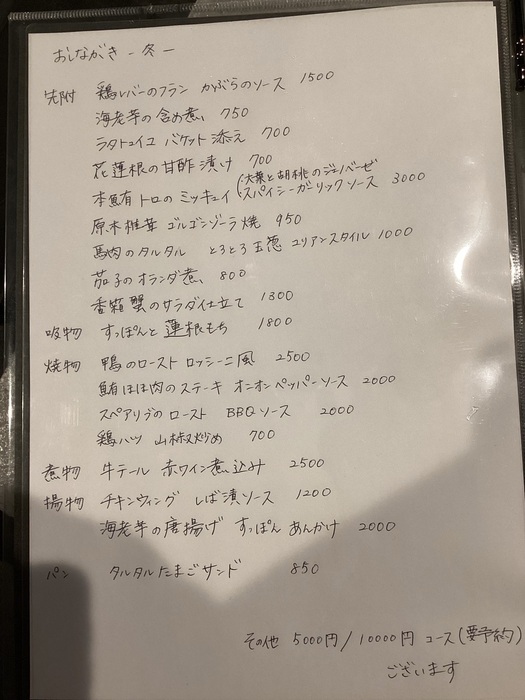 おしながき - 冬 -
先附 鶏レバーのフラン かぶらのソース 1500
海老芋の含め煮 750
ラタトゥイユ バケット添え 700
花蓮根の甘酢漬け 700
本鮪トロのミッキュイ (大葉と胡桃のジェノベーゼ
・スパイシーガーリックソース 3000
原木椎茸 ゴルゴンゾーラ焼 950
馬肉のタルタル とろとろ玉葱 ユリアンスタイル 1000
茄子のオランダ煮 800
香箱蟹のサラダ仕立て 1300
吸物 すっぽんと蓮根もち 1800
焼物 鴨のロースト ロッシーニ風 2500
鮪ほほ肉のステーキ オニオンペッパーソース 2000
スペアリブのロースト BBQソース 2000
鶏ハツ 山椒炒め 700
煮物 牛テール 赤ワイン煮込み 2500
揚物 チキンウィング しば漬ソース 1200
海老芋の唐揚げ すっぽんあんかけ 2000
パン タルタルたまごサンド 850
その他 5000円/10000円 コース(要予約)
ございます